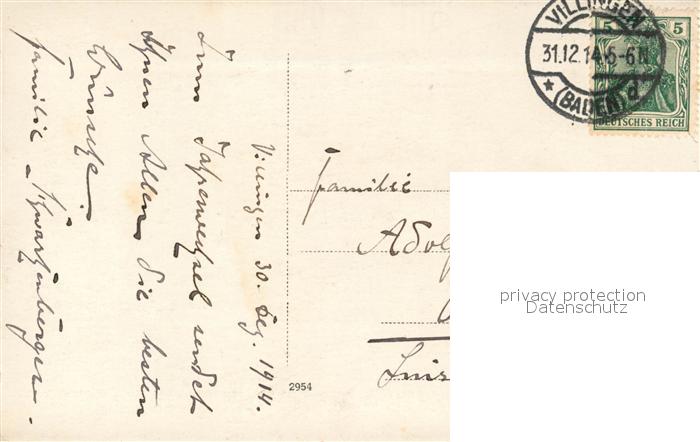 Villingen 30. Dez. 1914.
Zum Jahreswechsel sendet
Ihnen Allen die besten
Wünsche!
familie Schwarzenberger.
VILLINGEN
31.12.14.5-6N
* (BADEN) d
5 5
DEUTSCHES REICH
familie
Adol
2954
privacy protection
Datenschutz